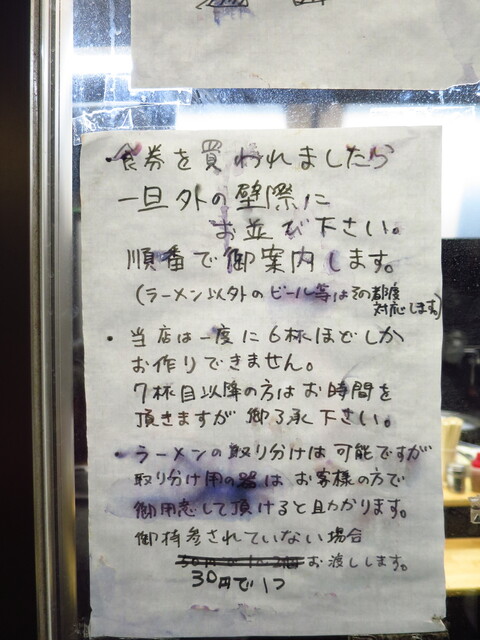 ・食券を買われましたら
一旦外の壁際に
お並び下さい。
順番で御案内します。
(ラーメン以外のビール等はその都度
対応します)
・当店は一度に6杯ほどしか
お作りできません。
7杯目以降の方はお時間を
頂きますが御了承下さい。
・ラーメンの取り分けは可能ですが
取り分け用の器はお客様の方で
御用意して頂けると助かります。
御持参されていない場合
お渡しします。
30円で1つ